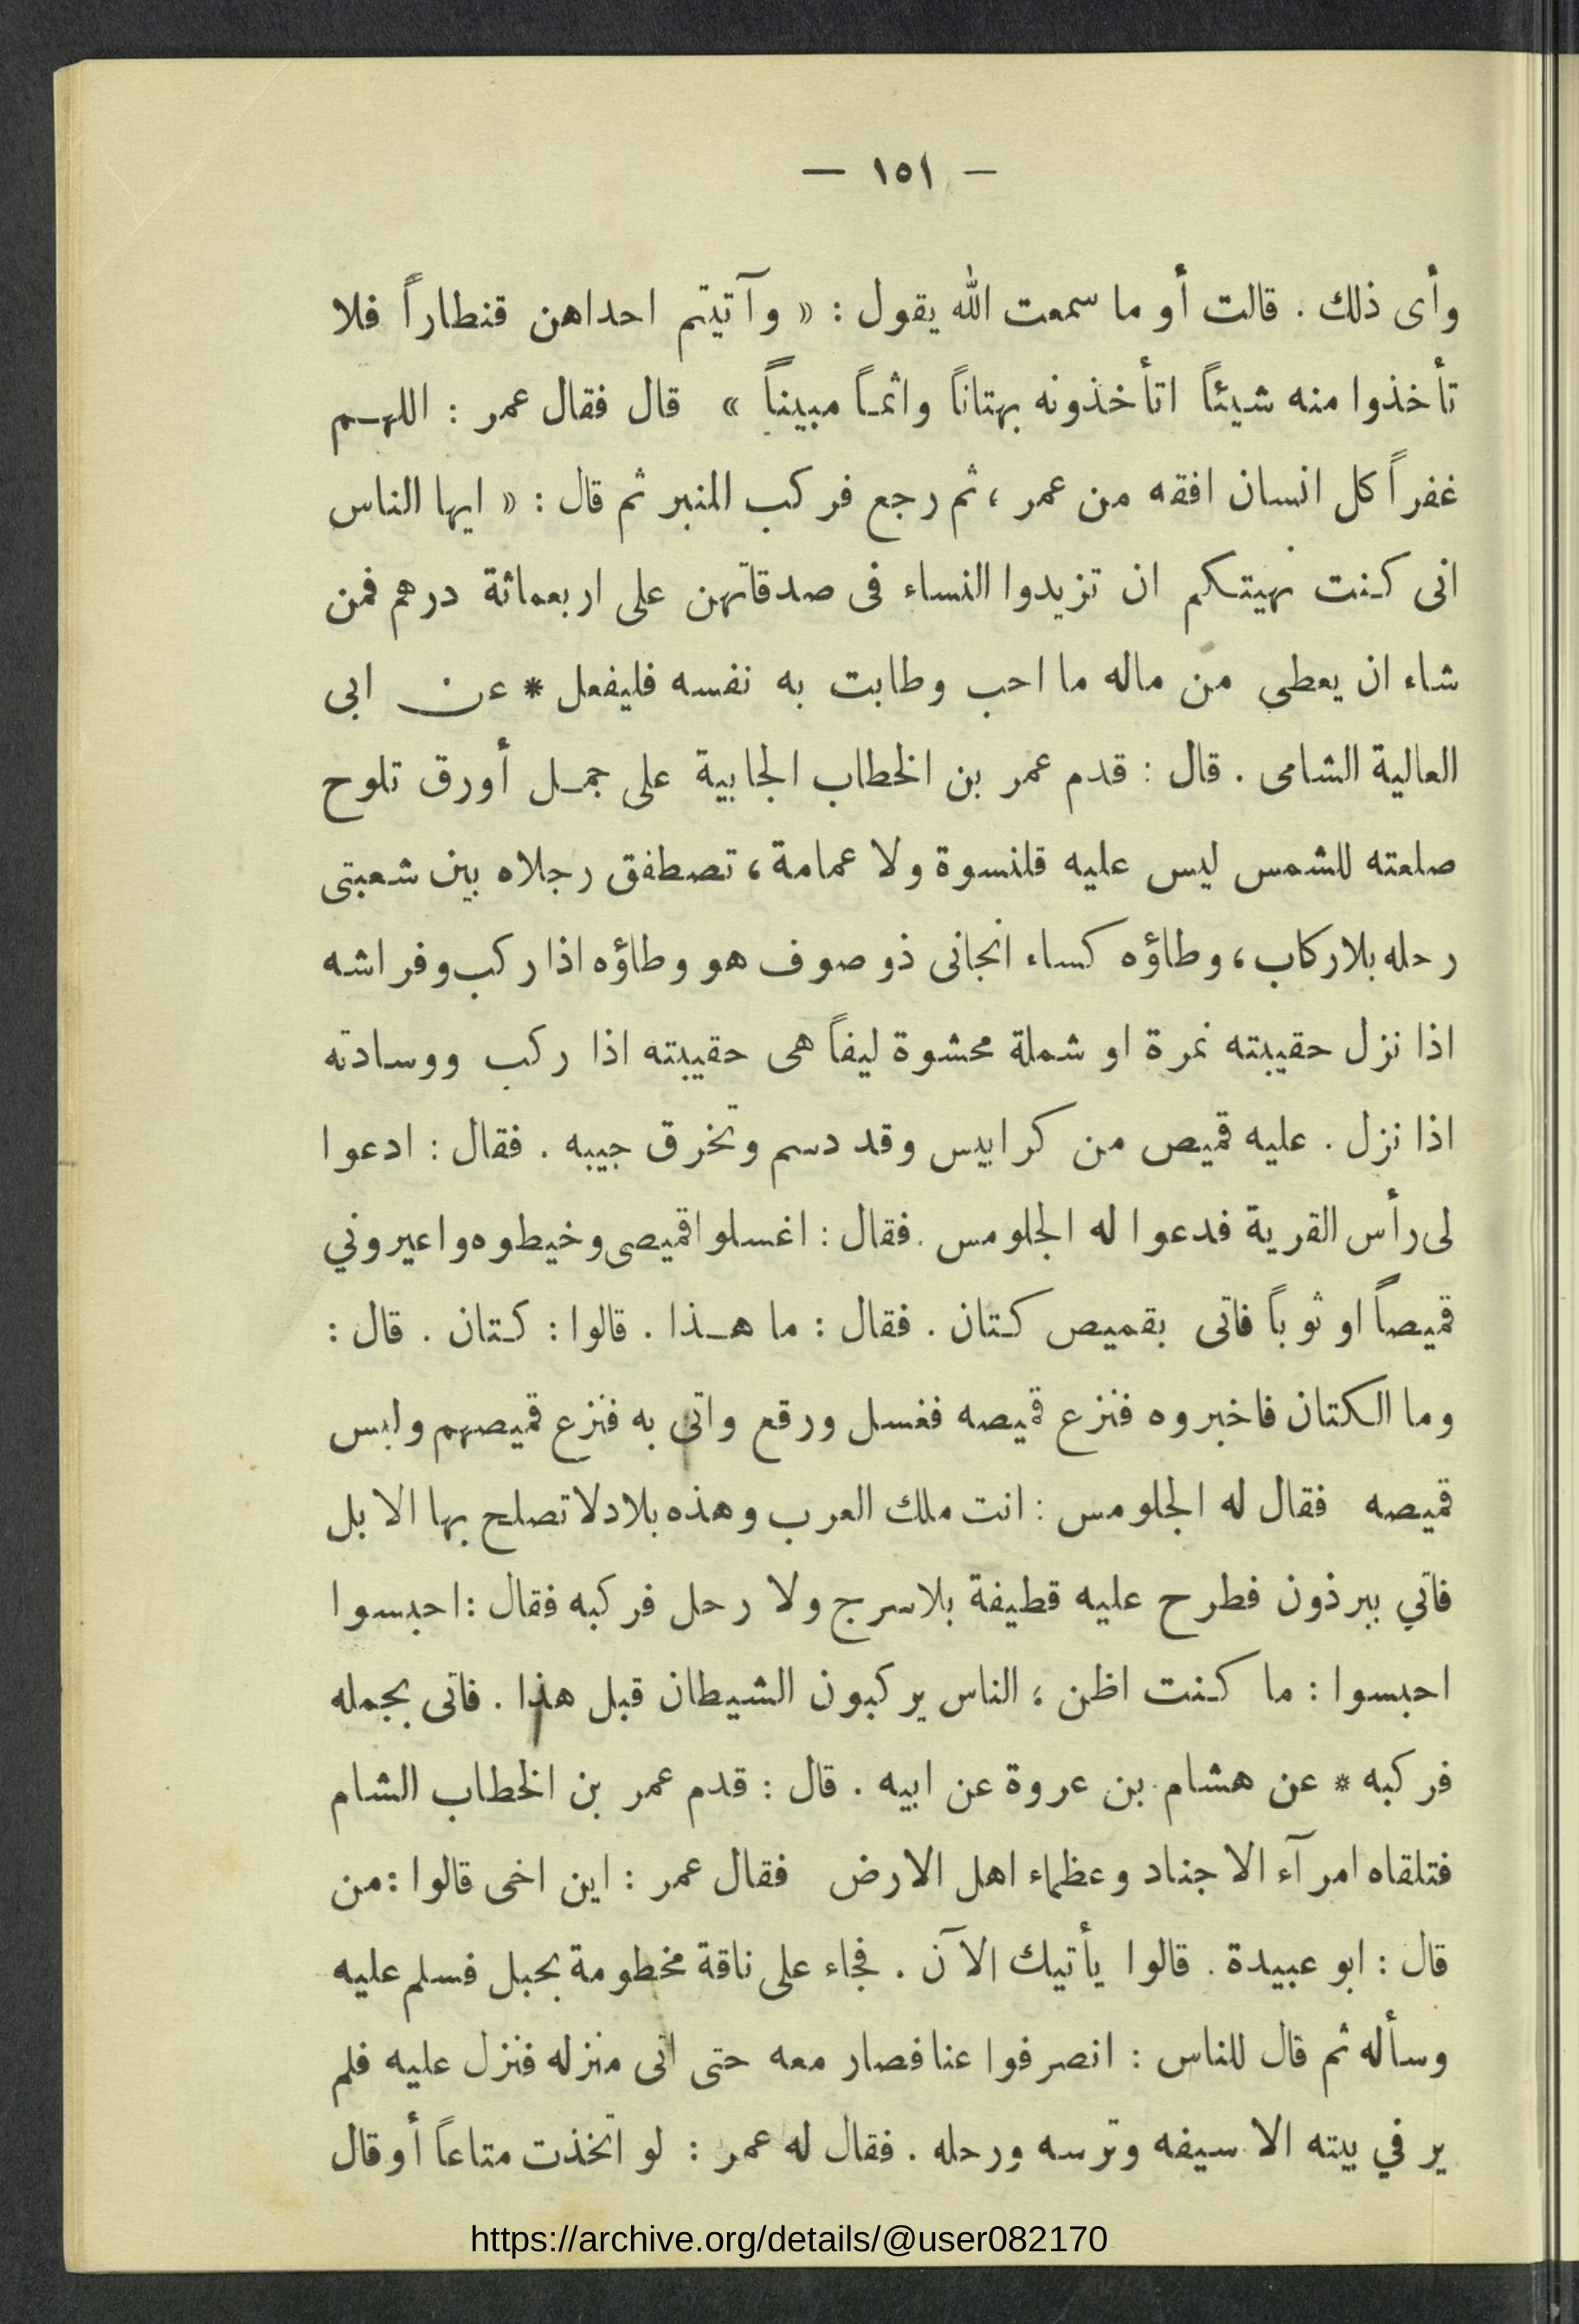 — ١٥١ —
وأى ذلك . قالت أو ما سمعت الله يقول : « وآتيتم احداهن قنطاراً فلا
تأخذوا منه شيئاً اتأخذونه بهتاناً واثماً مبيناً » قال فقال عمر : اللهم
غفراً كل انسان افقه من عمر ، ثم رجع فركب المنبر ثم قال : « ايها الناس
انى كنت نهيتكم ان تزيدوا النساء فى صدقاتهن على اربعمائة درهم فمن
شاء ان يعطى من ماله ما احب وطابت به نفسه فليفعل * عن ابى
العالية الشامى . قال : قدم عمر بن الخطاب الجابية على جمل أورق تلوح
صلعته للشمس ليس عليه قلنسوة ولا عمامة ، تصطفق رجلاه بين شعبتى
رحله بلا ركاب ، وطاؤه كساء انجانى ذو صوف هو وطاؤه اذا ركب وفراشه
اذا نزل حقيبته نمرة او شملة محشوة ليفاً هى حقيبته اذا ركب ووسادته
اذا نزل . عليه قميص من كرابيس وقد دسم وتخرق جيبه . فقال : ادعوا
لى رأس القرية فدعوا له الجلومس . فقال : اغسلوا قميصى وخيطوه واعيروني
قميصاً او ثوباً فاتى بقميص كتان . فقال : ما هذا . قالوا : كتان . قال :
وما الكتان فاخبروه فنزع قميصه فغسل ورقع واتى به فنزع قميصهم ولبس
قميصه فقال له الجلومس : انت ملك العرب وهذه بلاد لا تصلح بها الابل
فاتي ببرذون فطرح عليه قطيفة بلا سرج ولا رحل فركبه فقال : احبسوا
احبسوا : ما كنت اظن ؛ الناس يركبون الشيطان قبل هذا . فاتى بجمله
فركبه * عن هشام بن عروة عن ابيه . قال : قدم عمر بن الخطاب الشام
فتلقاه امرآء الاجناد وعظماء اهل الارض فقال عمر : اين اخى قالوا : من
قال : ابو عبيدة . قالوا يأتيك الآن . فجاء على ناقة مخطومة بحبل فسلم عليه
وسأله ثم قال للناس : انصرفوا عنا فصار معه حتى اتى منزله فنزل عليه فلم
ير في بيته الا سيفه وترسه ورحله . فقال له عمر : لو اتخذت متاعاً أو قال
https://archive.org/details/@user082170